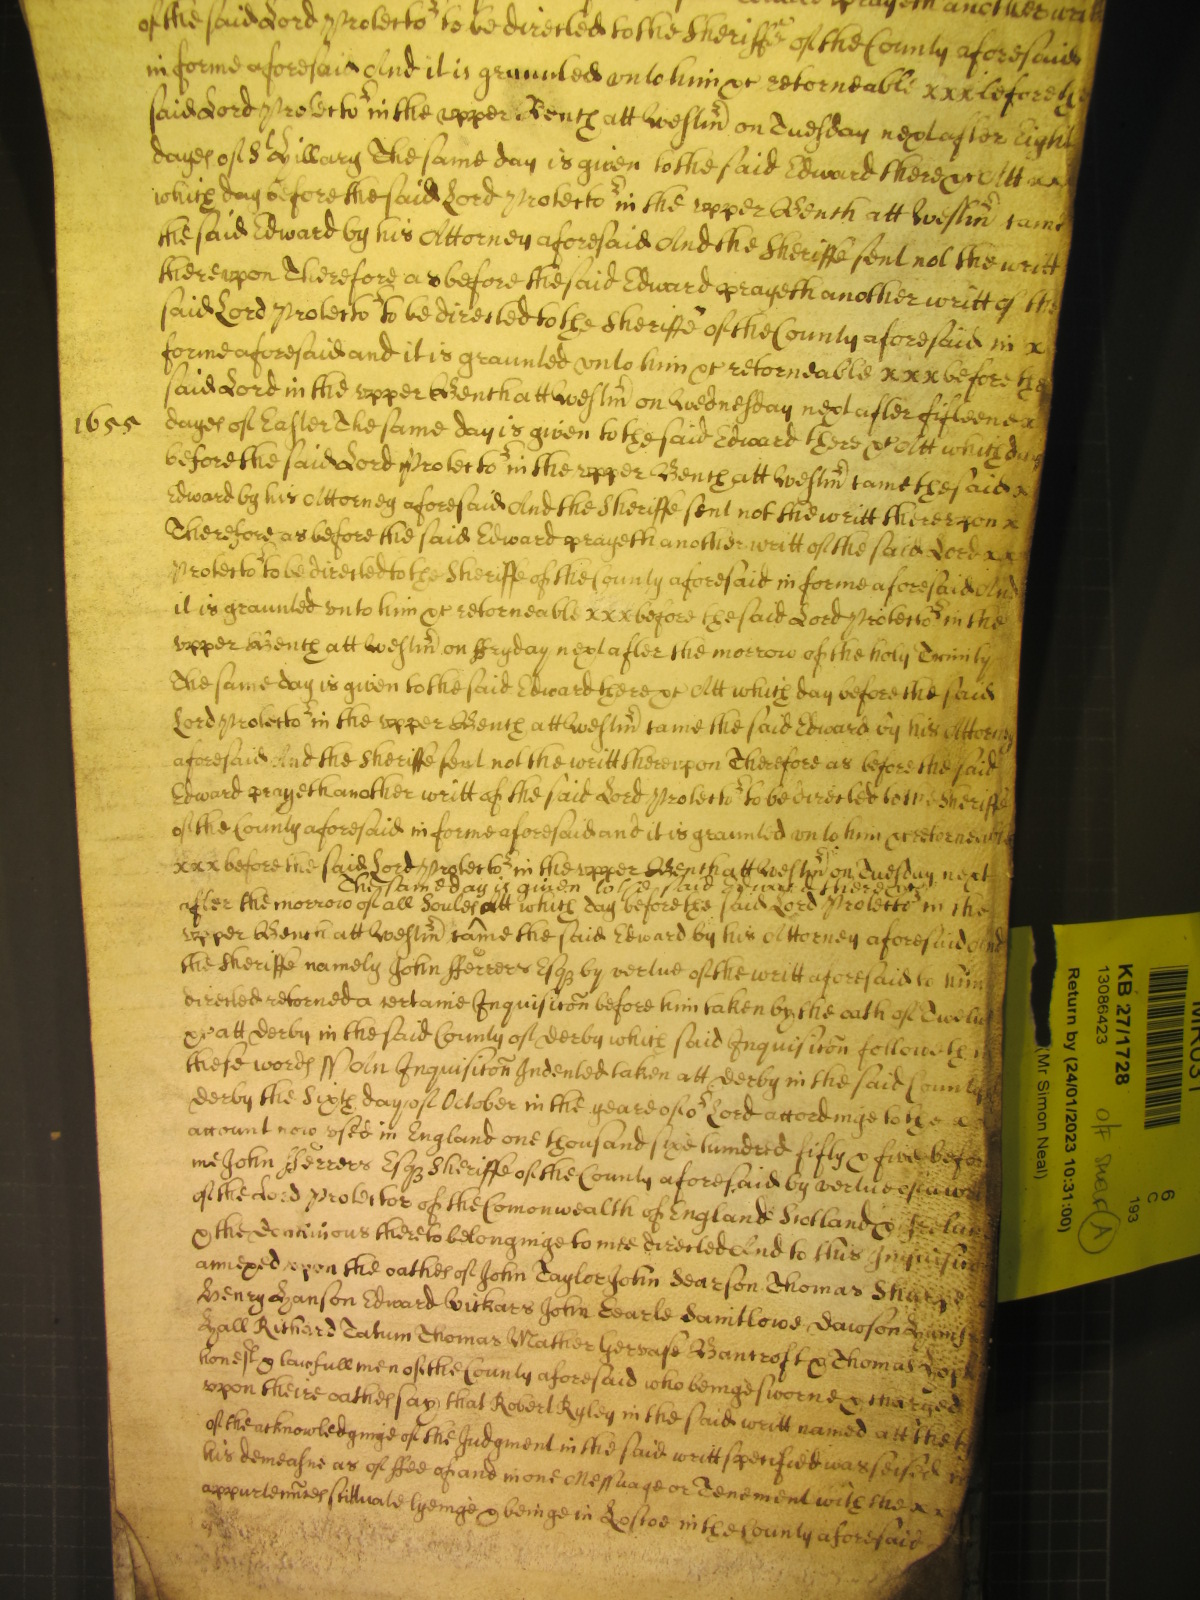 prayeth another writt
of the said Lord Protector to be directed to the Sheriffe of the County aforesaid
in forme aforesaid And it is graunted vnto him &c retorneable xxx before the
said Lord Protector in the vpper Bench att Westm on Tuesday next after Eight
dayes of St Hillary The same day is given to the said Edward there &c Att xx
which day before the said Lord Protector in the vpper Bench att Westm came
the said Edward by his Attorney aforesaid And the Sheriffe sent not the writt
therevpon Therefore as before the said Edward prayeth another writt of the
said Lord Protector to be directed to the Sheriffe of the County aforesaid in x
forme aforesaid and it is graunted vnto him &c retorneable xxx before the
said Lord in the vpper Bench att Westm on Wednesday next after fifteene x
1655 dayes of Easter The same day is given to the said Edward there &c Att which day
before the said Lord Protector in the vpper Bench att Westm came the said x
Edward by his Attorney aforesaid And the Sheriffe sent not the writt therevpon x
Therefore as before the said Edward prayeth another writt of the said Lord xx
Protector to be directed to the Sheriffe of the County aforesaid in forme aforesaid And
it is graunted vnto him &c retorneable xxx before the said Lord Protector in the
vpper Bench att Westm on ffryday next after the morrow of the holy Trinity
The same day is given to the said Edward there &c Att which day before the said
Lord Protector in the vpper Bench att Westm came the said Edward by his Attorney
aforesaid And the Sheriffe sent not the writt therevpon Therefore as before the said
Edward prayeth another writt of the said Lord Protector to be directed to the Sheriffe
of the County aforesaid in forme aforesaid and it is graunted vnto him &c retorneable
xxx before the said Lord Protector in the vpper Bench att Westm on Tuesday next
The same day is given to the said Edward there &c
after the morrow of all Soules Att which day before the said Lord Protector in the
vpper Bench att Westm came the said Edward by his Attorney aforesaid And
the Sheriffe namely John fferrers Esqr by vertue of the writt aforesaid to him
directed retorned a certaine Inquisicon before him taken by the oath of Twelve
&c att Derby in the said County of Derby which said Inquisicon followeth in
these words ss An Inquisicon Indented taken att Derby in the said County
Derby the Sixth day of October in the yeare of or Lord accordinge to the x
account now vsed in England one thousand six hundred fifty & five before
me John fferrers Esqr Sheriffe of the County aforesaid by vertue of a writt
of the Lord Protector of the Comonwealth of England Scotland & Ireland
& the Dominions thereto belonginge to mee directed And to this Inquisicon
annexed vpon the oathes of John Taylor John Pearson Thomas
Henry Hanson Edward Vickars John Searle Dawson
Hall Richard Tatum Thomas Mather Gervase Bancroft & Thomas
honest & lawfull men of the County aforesaid who beinge sworne & charged
vpon theire oathes say that Robert Ryley in the said writt named att the
of the acknowledginge of the Judgment in the said writt specified was seised
his demeasne as of ffee of and in one Messuage or Tenement with the xx
appurtennces scittuate lyeinge & beinge in Loscoe in the County aforesaid
MR031
KB 27/1728
13086423
Return by (24/01/2023 10:31:00)
(Mr Simon Neal)
6
C
193
A